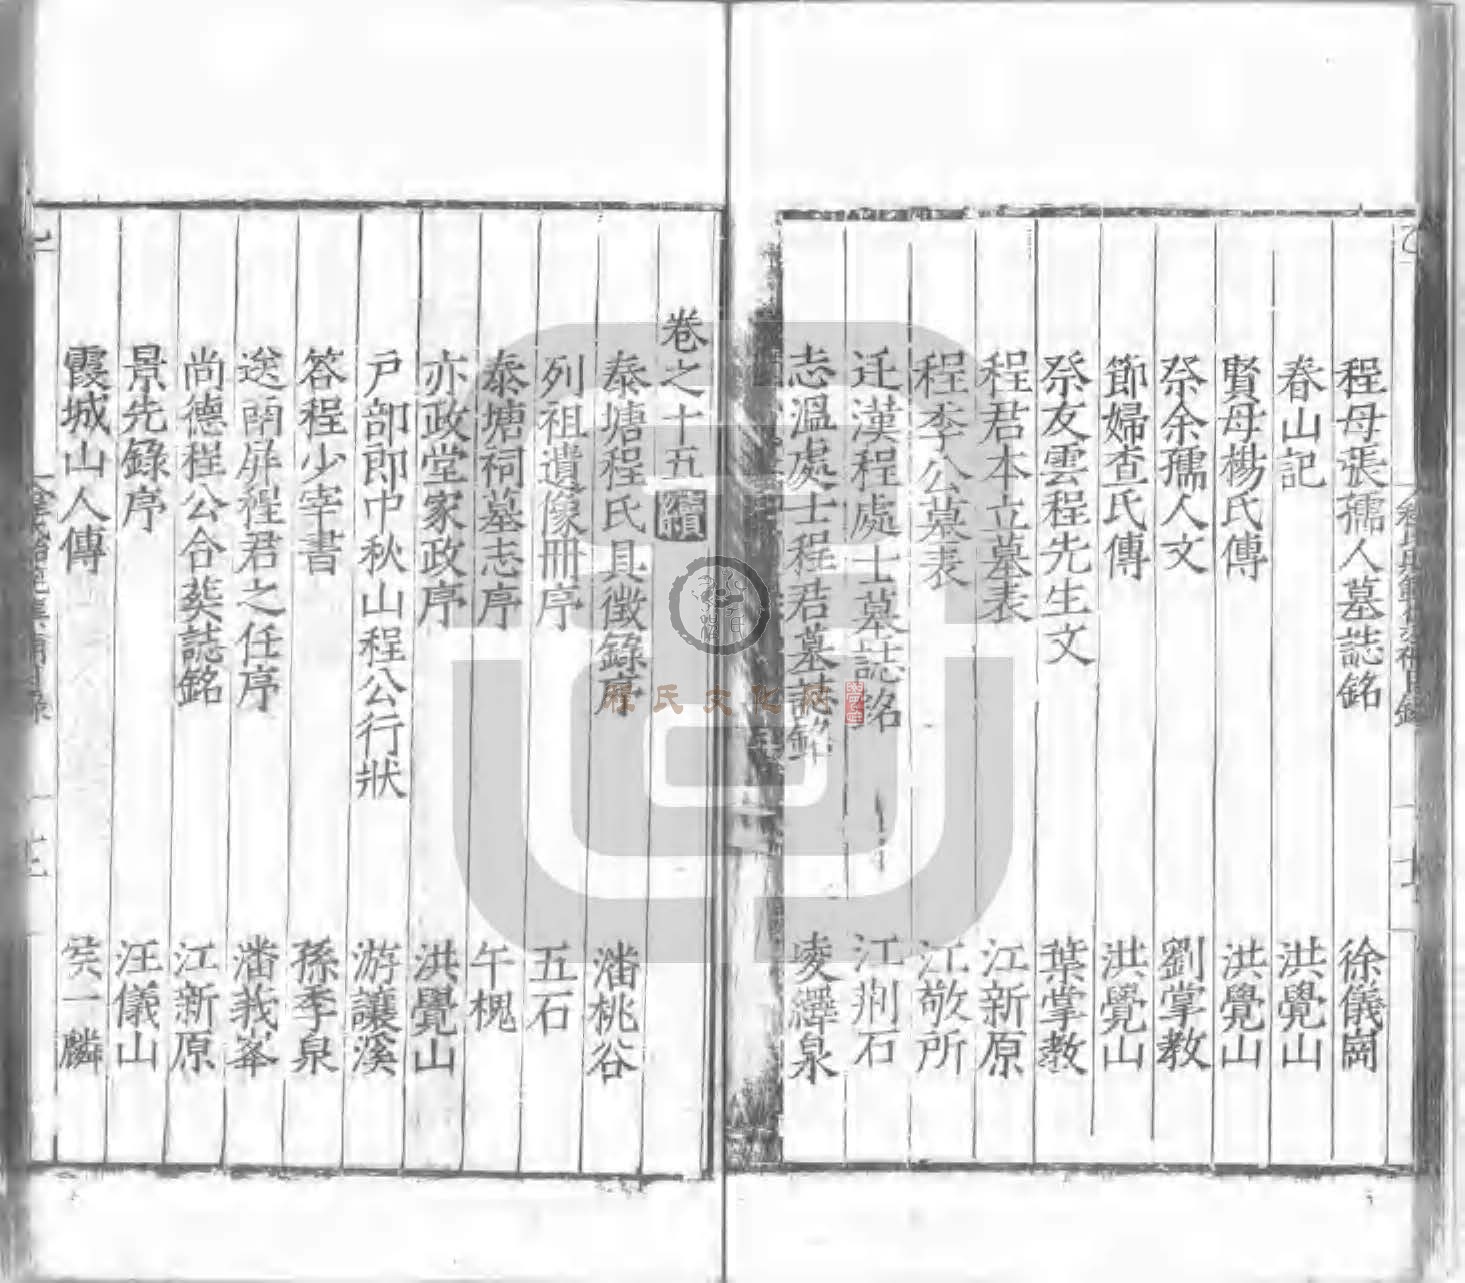 程母張孺人墓誌銘 徐儀崗
春山記 洪覺山
賢母楊氏傳 洪覺山
祭余孺人文 劉掌教
節婦查氏傳 洪覺山
祭友雲程先生文 葉掌教
程君本立墓表 江新原
程季公墓表 江敬所
迁漢程處士墓誌銘 江荆石
志溫處士程君墓誌銘 崚繹泉
卷之十五 續
泰塘程氏具徵錄序 潘桃谷
列祖遺像冊序 五石
泰塘祠墓志序 午槐
亦政堂家政序 洪覺山
戶部郎中秋山程公行狀 游讓溪
答程少宰書 孫季泉
送蘭屏程君之任序 潘莪峯
尚德程公合葬誌銘 江新原
景先錄序 汪儀山
霞城山人傳 侯一麟
程氏文化网